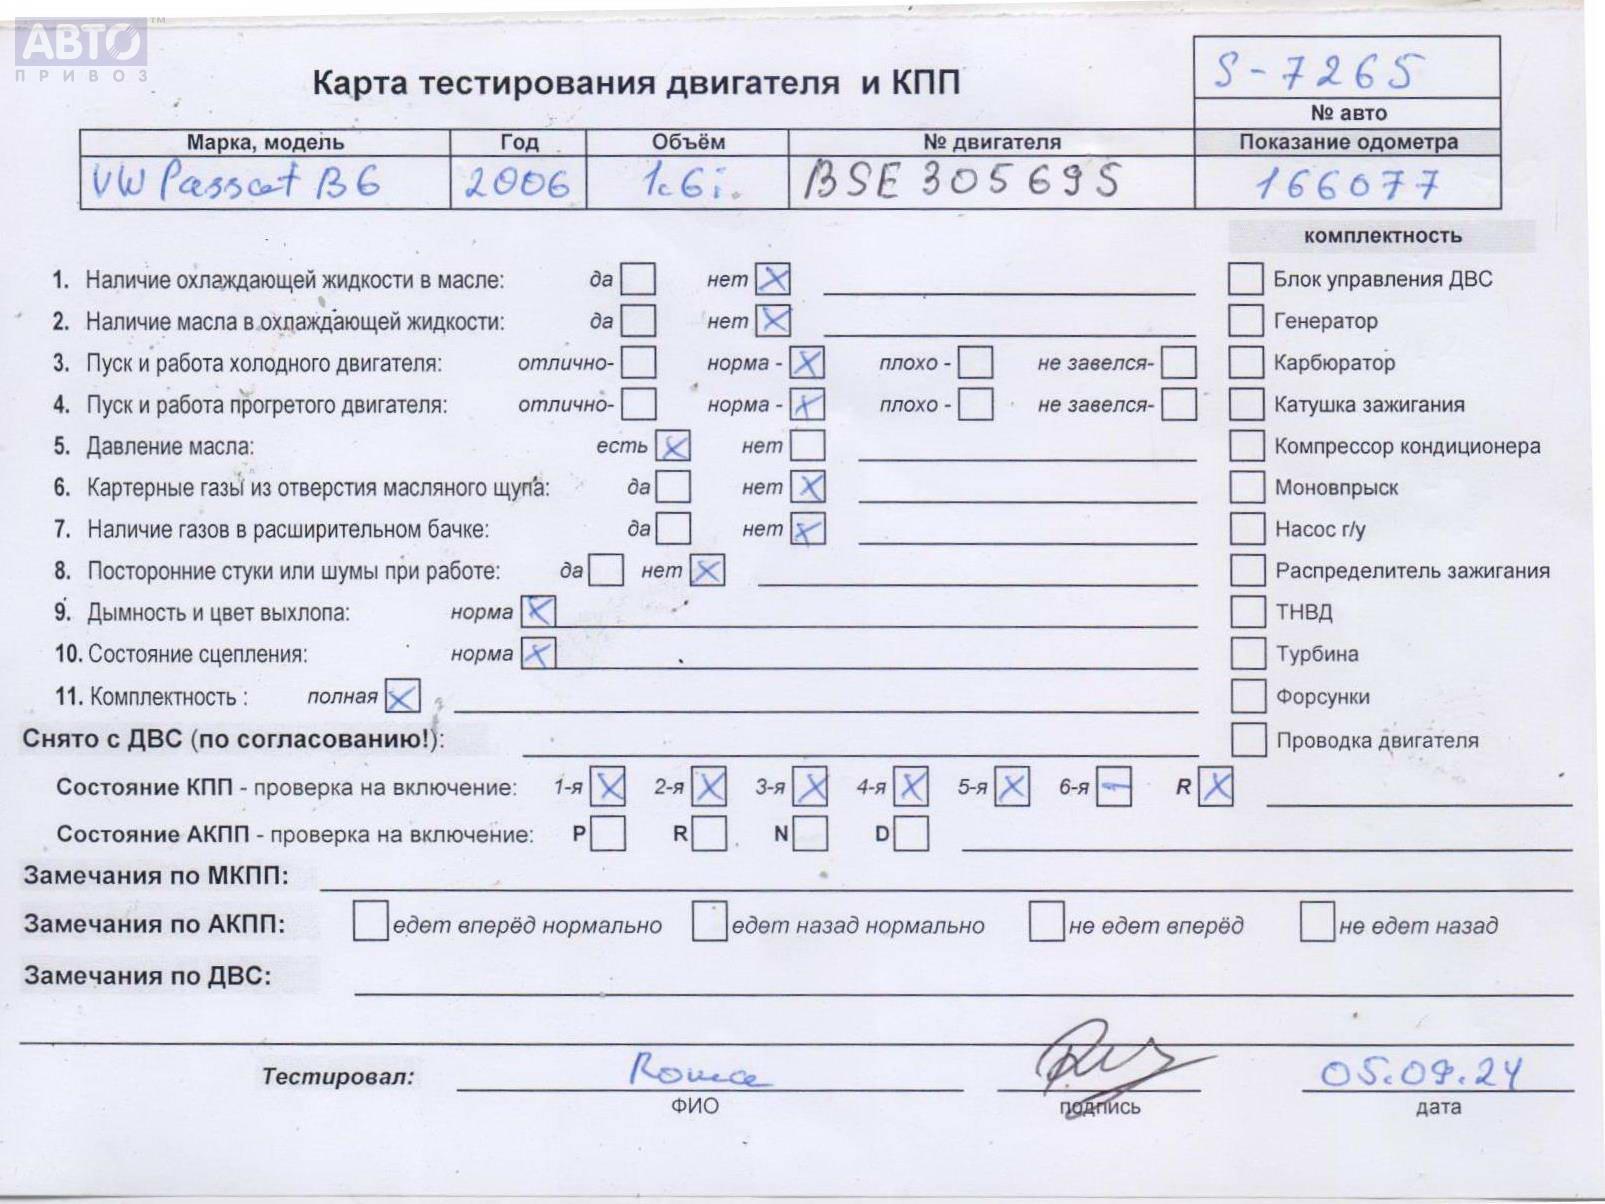 АВТО™
ПРИВОЗ
Карта тестирования двигателя и КПП
S-7265
№ авто
Марка, модель Год Объём № двигателя Показание одометра
VW Passat B6 2006 1.6i. BSE 305695 166077
комплектность
1. Наличие охлаждающей жидкости в масле: да нет X Блок управления ДВС
2. Наличие масла в охлаждающей жидкости: да нет X Генератор
3. Пуск и работа холодного двигателя: отлично- норма - X плохо - не завелся- Карбюратор
4. Пуск и работа прогретого двигателя: отлично- норма - X плохо - не завелся- Катушка зажигания
5. Давление масла: есть X нет Компрессор кондиционера
6. Картерные газы из отверстия масляного щупа: да нет X Моновпрыск
7. Наличие газов в расширительном бачке: да нет X Насос г/у
8. Посторонние стуки или шумы при работе: да нет X Распределитель зажигания
9. Дымность и цвет выхлопа: норма X ТНВД
10. Состояние сцепления: норма X Турбина
11. Комплектность : полная X Форсунки
Снято с ДВС (по согласованию!): Проводка двигателя
Состояние КПП - проверка на включение: 1-я X 2-я X 3-я X 4-я X 5-я X 6-я – R X
Состояние АКПП - проверка на включение: P R N D
Замечания по МКПП:
Замечания по АКПП: едет вперёд нормально едет назад нормально не едет вперёд не едет назад
Замечания по ДВС:
Тестировал: Рома 05.09.24
ФИО подпись дата